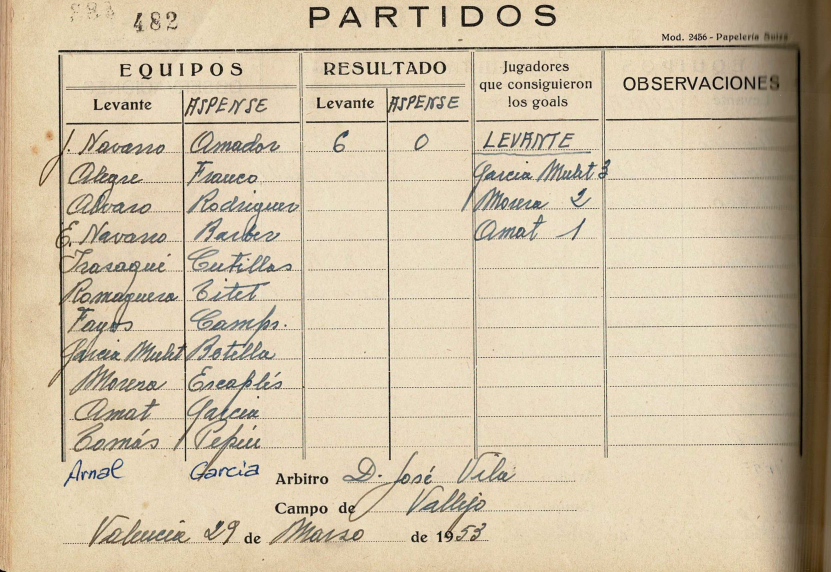 482
PARTIDOS
Mod. 2456 - Papelería Boira
EQUIPOS RESULTADO Jugadores que consiguieron los goals OBSERVACIONES
Levante ASPENSE Levante ASPENSE
J. Navarro Amador 6 0 LEVANTE
Alegre Franco Garcia Mulet 3
Alvaro Rodriguez Morera 2
E. Navarro Barber Amat 1
Frasaqué Cutillas
Romaguera Titet
Fayos Camps.
Garcia Mulet Botella
Morera Escaplés
Amat Garcia
Tomás Pepin
Arnal Garcia
Arbitro D. José Vila
Campo de Vallejo
Valencia 29 de Marzo de 1953